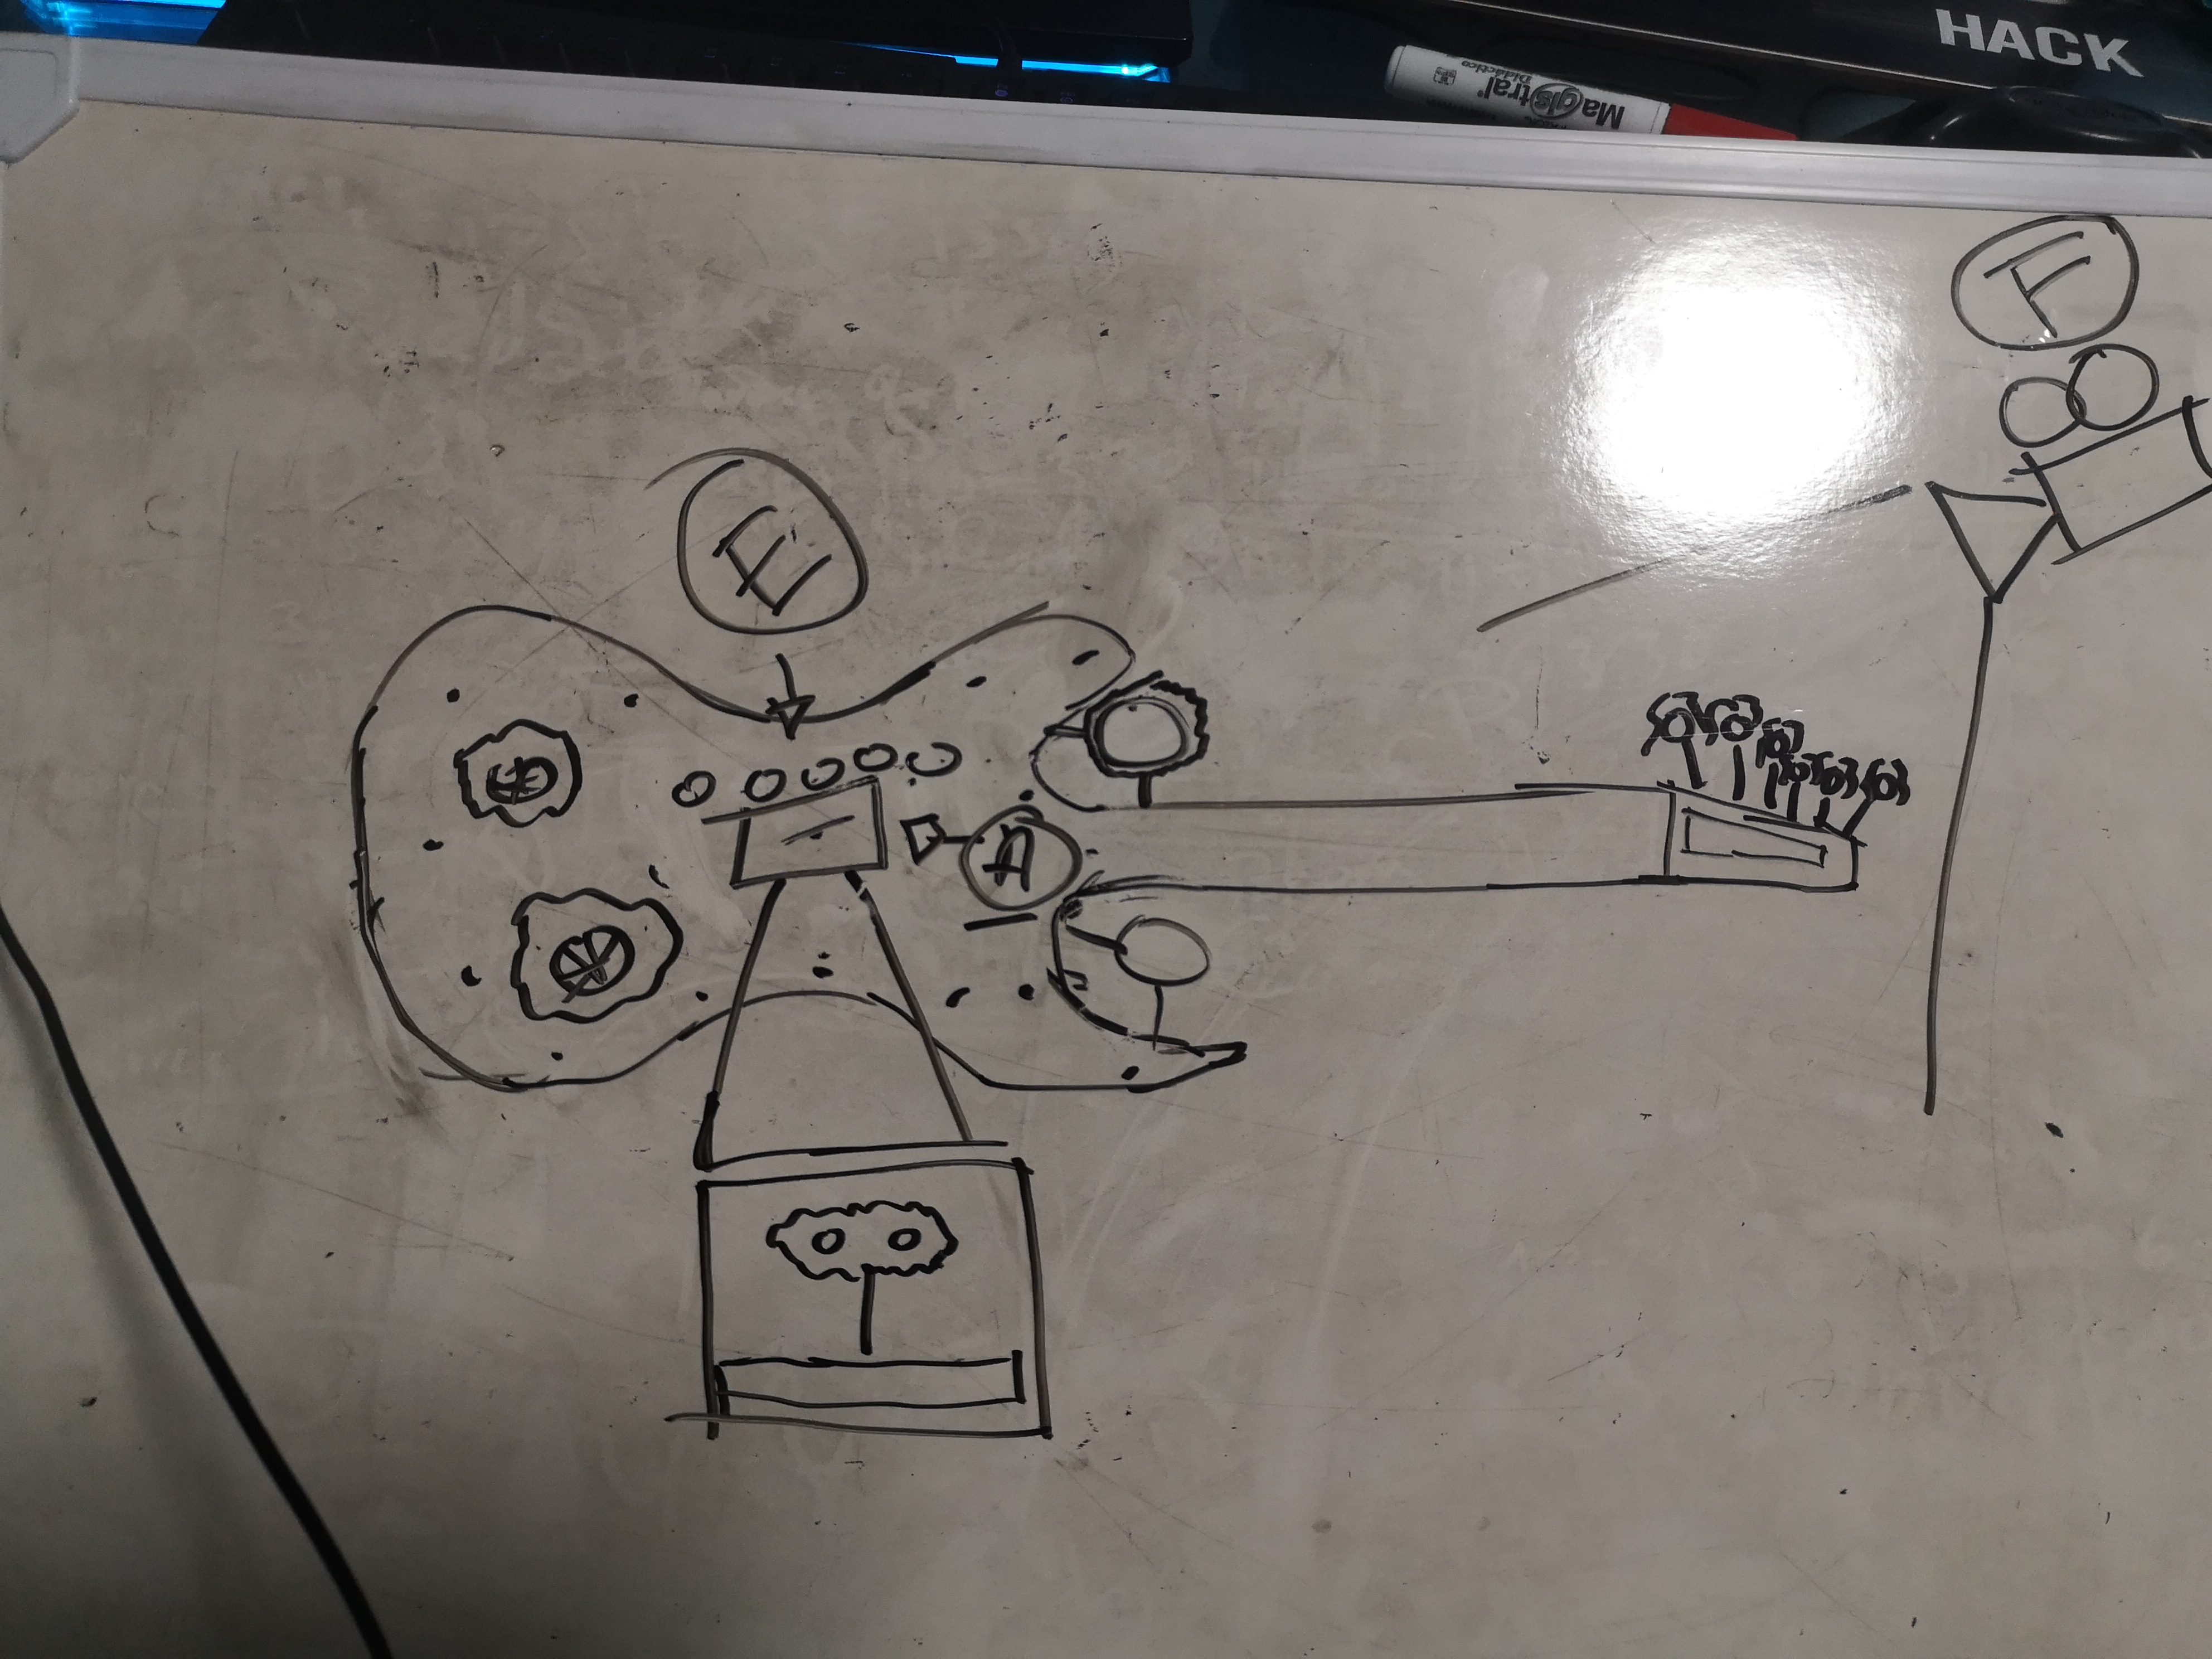 HACK
Magistral
Didáctico
F
E
A